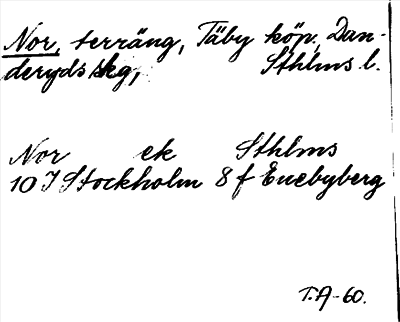 Nor, terräng, Täby köp, Dan-
deryds skg, Sthlms l.
Nor ek Sthlms
10 I Stockholm 8 f Enebyberg
T.A-60.